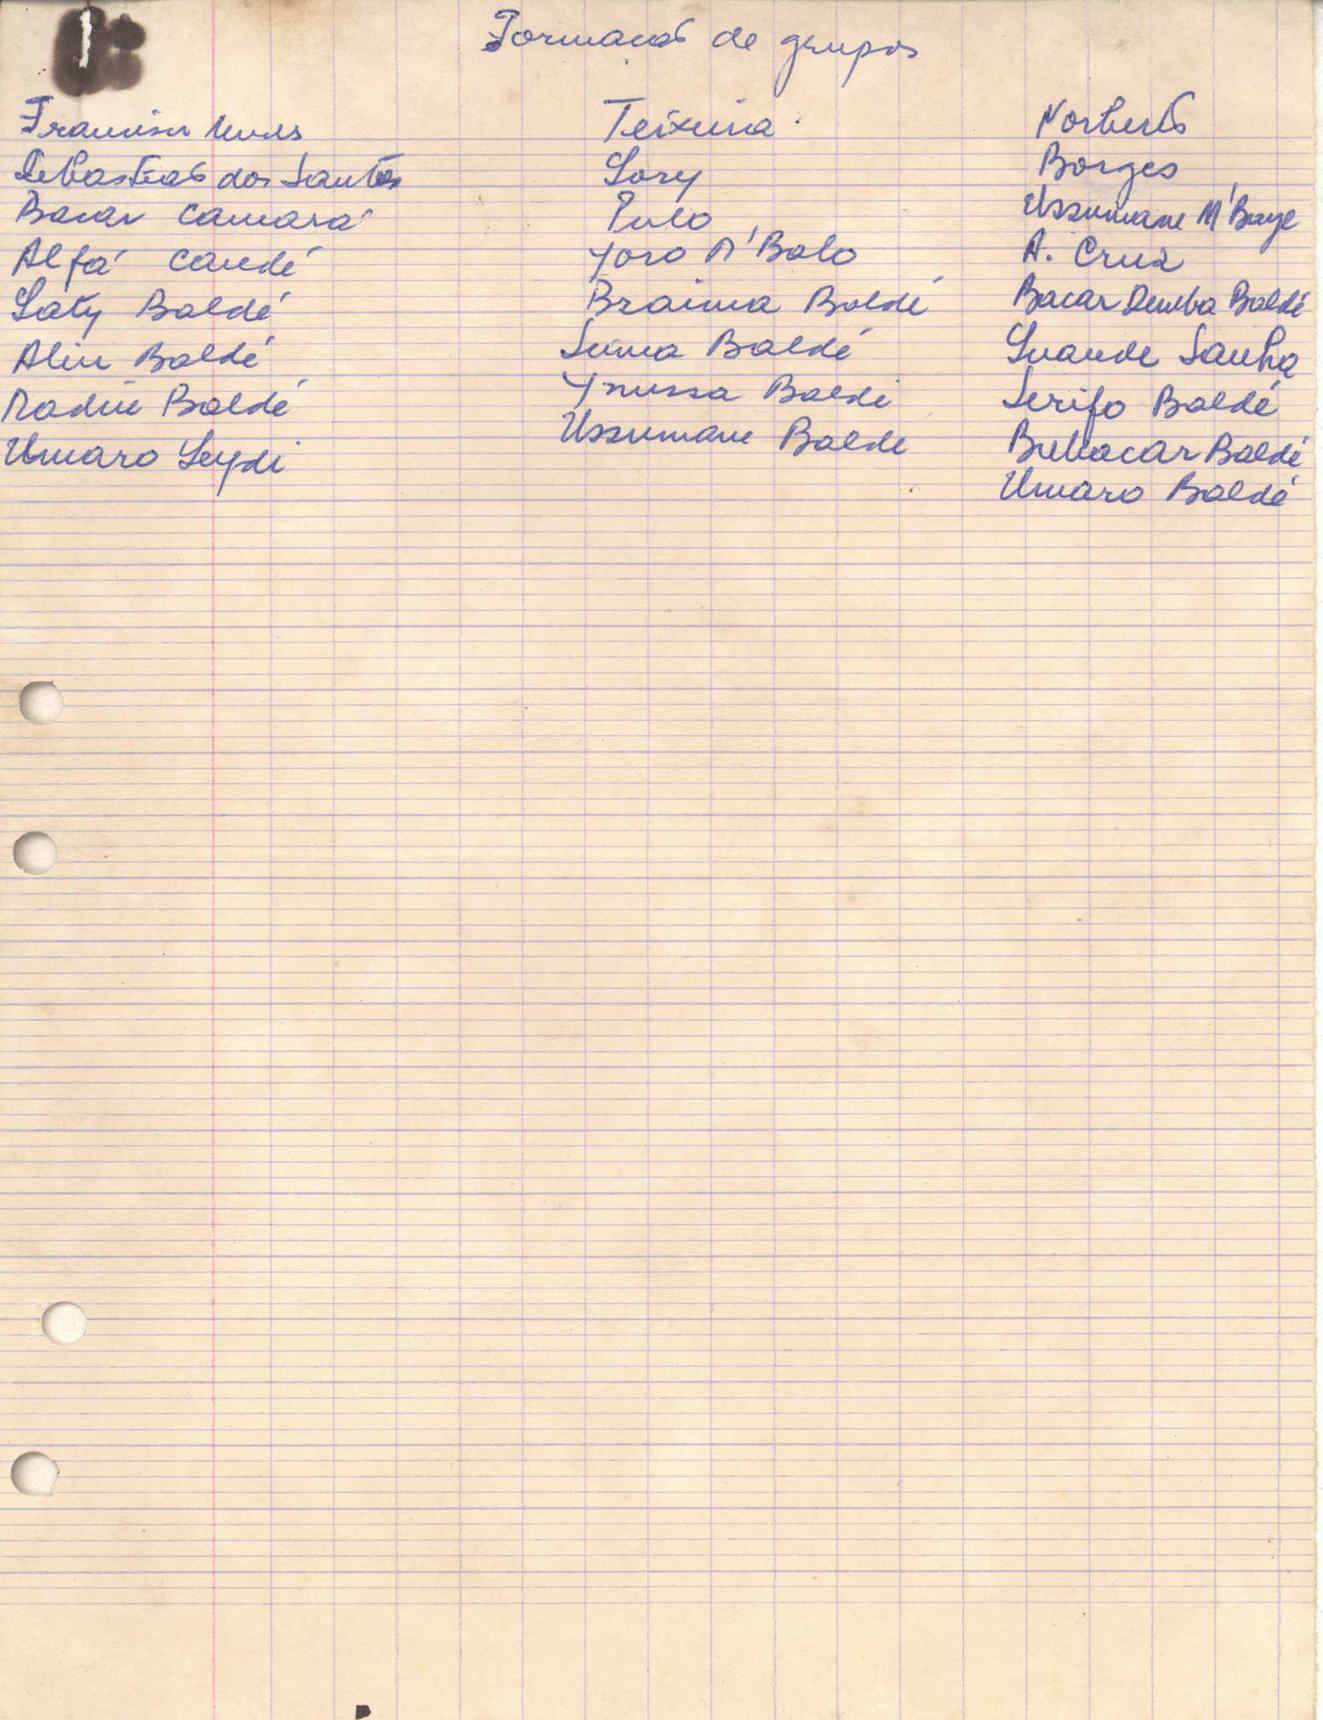 Formação de grupos
Francisco Nunes
Sebastião dos Santos
Bacar Camará
Alfá Candé
Saty Baldé
Aliu Baldé
Baldé
Umaro Seydi
Teixeira
Sory
Pulo
Yoro M'Balo
Braima Baldé
Suma Baldé
Ynussa Baldé
Ussumane Balde
Norberto
Borges
Ussumane M'Baye
A. Cruz
Bacar Demba Baldé
Suande Sanha
Serifo Baldé
Bubacar Baldé
Umaro Baldé